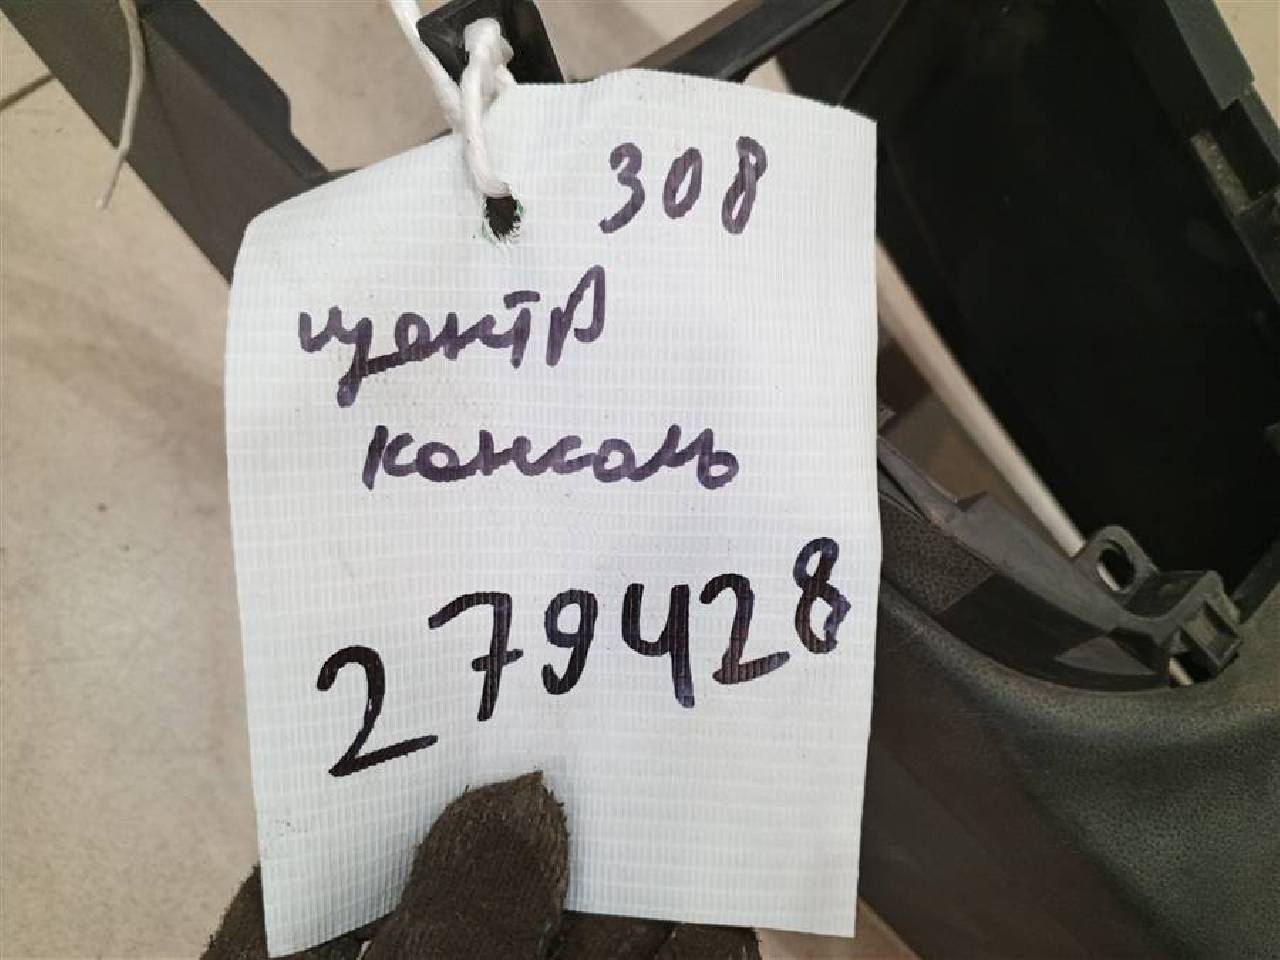 308
центр
консоль
279428